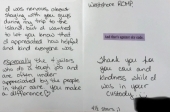 I was nervous about
staying with you guys
during my time to the
island, but I wanted
to let you know that
I appreciated how helpful
and kind everyone was.
especially the 4 guards
who do a tough job and
are often under
appreciated by the people
in their care. You make
a difference ♡
Westshore RCMP
Thank you for
you care and
kindness while I
was in your
custody.